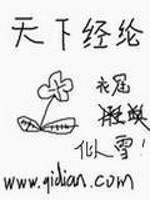 天下经纶
衣届
似雪！
www.qidian.com